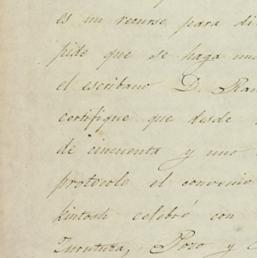 es un recurso para di
pide que se haga
el escribano D. Ra
certifique que desde
de cincuenta y uno
protocolo el convenio
kintosh celebró con
Pozo y